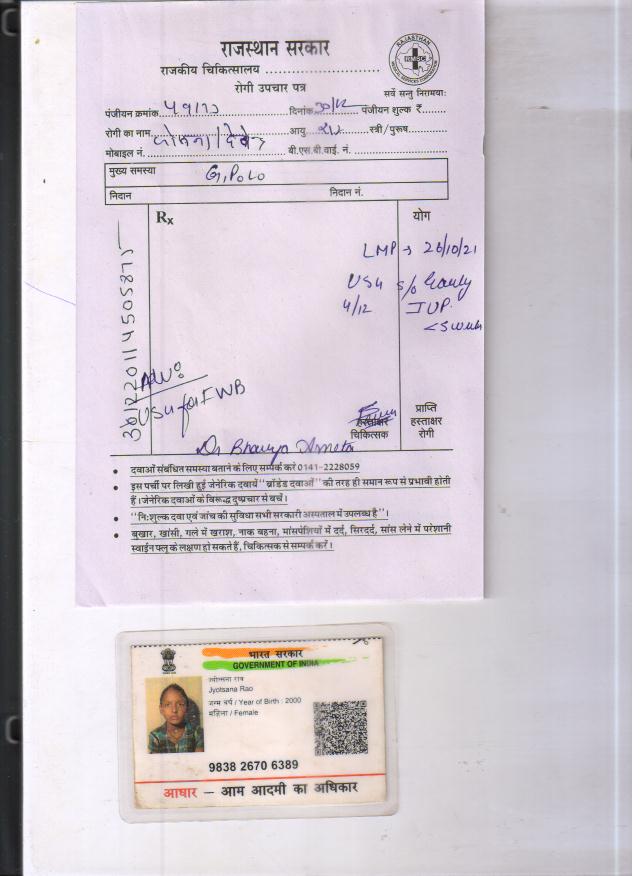 राजस्थान सरकार
राजकीय चिकित्सालय ..............................
रोगी उपचार पत्र
RAJASTHAN
RMSC
MEDICAL SERVICES CORPORATION
सर्वे सन्तु निरामयाः
पंजीयन क्रमांक दिनांक 30/12 पंजीयन शुल्क ₹
रोगी का नाम आयु स्त्री/पुरूष
मोबाइल नं. बी.एस.बी.वाई. नं.
मुख्य समस्या G1P0L0
निदान निदान नं.
Rx
योग
LMP → 26/10/21
USG s/o Early
4/12 IUP
Adv:
USG for FWB
Dr Bhavya Ameta
हस्ताक्षर
चिकित्सक
प्राप्ति
हस्ताक्षर
रोगी
• दवाओं संबंधित समस्या बताने के लिए सम्पर्क करें 0141-2228059
• इस पर्ची पर लिखी हुई जेनेरिक दवायें "ब्रॉडेड दवाओं" की तरह ही समान रूप से प्रभावी होती
हैं। जेनेरिक दवाओं के विरूद्ध दुष्प्रचार से बचें।
• "निःशुल्क दवा एवं जांच की सुविधा सभी सरकारी अस्पताल में उपलब्ध है"।
• बुखार, खांसी, गले में खराश, नाक बहना, मांसपेशियों में दर्द, सिरदर्द, सांस लेने में परेशानी
स्वाईन फ्लू के लक्षण हो सकते हैं, चिकित्सक से सम्पर्क करें।
भारत सरकार
GOVERNMENT OF INDIA
ज्योत्सना राव
Jyotsana Rao
जन्म वर्ष / Year of Birth : 2000
महिला / Female
9838 2670 6389
आधार – आम आदमी का अधिकार